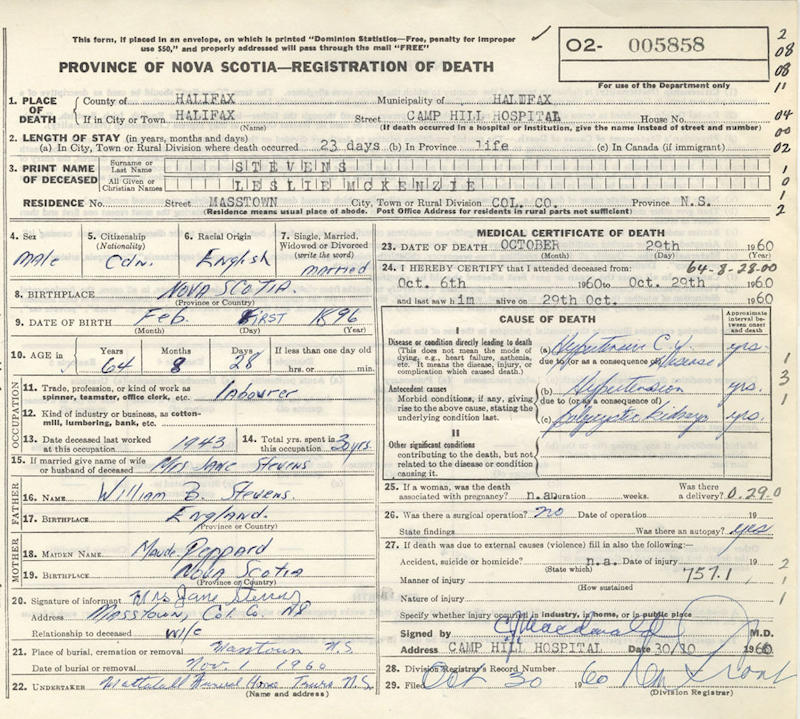 This form, if placed in an envelope, on which is printed "Dominion Statistics—Free, penalty for improper
use $50," and properly addressed will pass through the mail "FREE"
PROVINCE OF NOVA SCOTIA—REGISTRATION OF DEATH
O2- 005858
For use of the Department only
2
08
08
11
04
00
02
1
0
1
2
1. PLACE OF DEATH { County of HALIFAX Municipality of HALIFAX
If in City or Town HALIFAX Street CAMP HILL HOSPITAL House No.
(Name) (If death occurred in a hospital or institution, give the name instead of street and number)
2. LENGTH OF STAY (in years, months and days)
(a) In City, Town or Rural Division where death occurred 23 days (b) In Province life (c) In Canada (if immigrant)
3. PRINT NAME OF DECEASED { Surname or Last Name STEVENS
All Given or Christian Names LESLIE MCKENZIE
RESIDENCE No. Street MASSTOWN City, Town or Rural Division COL. CO. Province N.S.
(Residence means usual place of abode. Post Office Address for residents in rural parts not sufficient)
4. Sex Male
5. Citizenship (Nationality) Cdn.
6. Racial Origin English
7. Single, Married, Widowed or Divorced (write the word) married
8. BIRTHPLACE NOVA SCOTIA.
(Province or Country)
9. DATE OF BIRTH Feb. First 1896
(Month) (Day) (Year)
10. AGE in { Years 64 Months 8 Days 28 If less than one day old
hrs. or min.
OCCUPATION
11. Trade, profession, or kind of work as spinner, teamster, office clerk, etc. labourer
12. Kind of industry or business, as cotton-mill, lumbering, bank, etc.
13. Date deceased last worked at this occupation 1943
14. Total yrs. spent in this occupation 30 yrs.
15. If married give name of wife or husband of deceased Mrs Jane Stevens
FATHER
16. NAME William B. Stevens.
17. BIRTHPLACE England.
(Province or Country)
MOTHER
18. MAIDEN NAME Maude Peppard
19. BIRTHPLACE NOVA SCOTIA
(Province or Country)
20. Signature of informant Mrs Jane Stevens
Address Masstown, Col. Co. NS
Relationship to deceased wife
21. Place of burial, cremation or removal Masstown N.S.
Date of burial or removal Nov. 1 1960
22. UNDERTAKER Mattatall Funeral Home Truro N.S.
(Name and address)
MEDICAL CERTIFICATE OF DEATH
23. DATE OF DEATH OCTOBER 29th 1960
(Month) (Day) (Year)
24. I HEREBY CERTIFY that I attended deceased from: 64-8-28-00
Oct. 6th 1960 to Oct. 29th 1960
and last saw him alive on 29th Oct. 1960
CAUSE OF DEATH
Approximate interval between onset and death
I
Disease or condition directly leading to death
(This does not mean the mode of dying, e.g., heart failure, asthenia, etc. It means the disease, injury, or complication which caused death.)
(a) Hypertensive C.V. Disease yrs.
due to (or as a consequence of)
Antecedent causes
Morbid conditions, if any, giving rise to the above cause, stating the underlying condition last.
(b) Hypertension yrs.
due to (or as a consequence of)
(c) polycystic kidneys yrs.
1
3
1
II
Other significant conditions
contributing to the death, but not related to the disease or condition causing it.
25. If a woman, was the death associated with pregnancy? n.a. Duration weeks. Was there a delivery? 0.29.0
26. Was there a surgical operation? no Date of operation 19
State findings Was there an autopsy? yes
27. If death was due to external causes (violence) fill in also the following:—
Accident, suicide or homicide? n.a. Date of injury 19 2
(State which)
Manner of injury 757.1 1
(How sustained)
Nature of injury 1
Specify whether injury occurred in industry, in home, or in public place
Signed by C Macdonald M.D.
Address CAMP HILL HOSPITAL Date 30/10 1960
28. Division Registrar's Record Number
29. Filed Oct 30 1960
(Division Registrar)